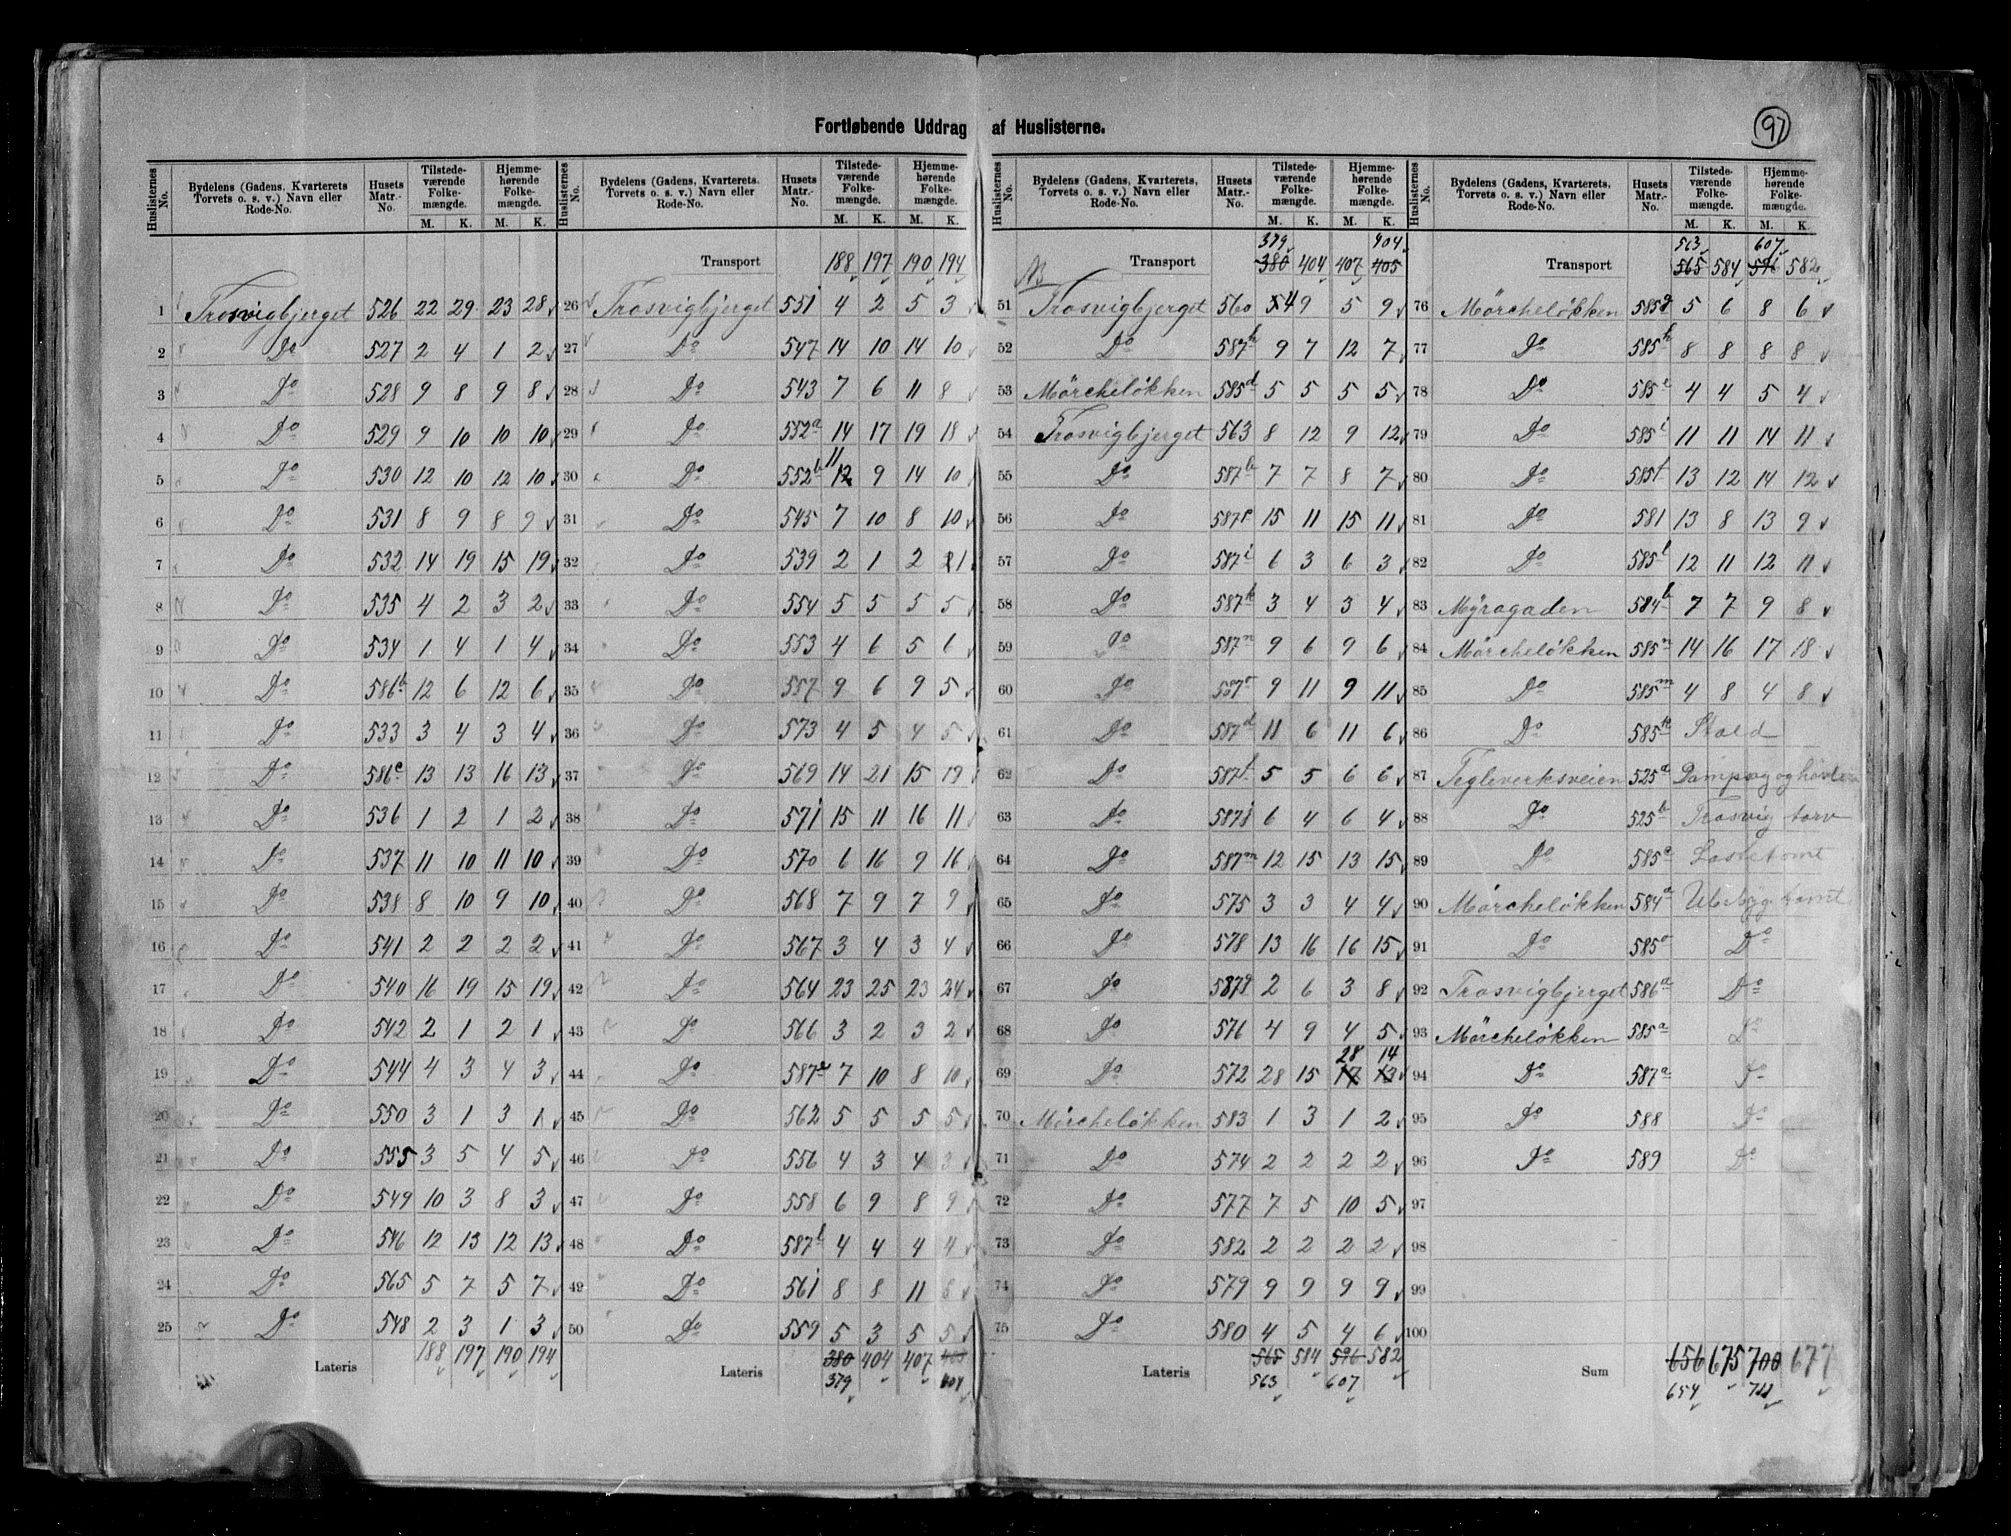 Fortløbende Uddrag af Huslisterne.
97
Huslisternes No. | Bydelens (Gadens, Kvarterets, Torvets o. s. v.) Navn eller Rode-No. | Husets Matr.-No. | Tilstedeværende Folkemængde. M. K. | Hjemmehørende Folkemængde. M. K.
1 Trosvigbjerget 526 22 29 23 28
2 Do 527 2 4 1 2
3 Do 528 9 8 9 8
4 Do 529 9 10 10 10
5 Do 530 12 10 12 10
6 Do 531 8 9 8 9
7 Do 532 14 19 15 19
8 Do 535 4 2 3 2
9 Do 534 1 4 1 4
10 Do 586b 12 6 12 6
11 Do 533 3 4 3 4
12 Do 586c 13 13 16 13
13 Do 536 1 2 1 2
14 Do 537 11 10 11 10
15 Do 538 8 10 9 10
16 Do 541 2 2 2 2
17 Do 540 16 19 15 19
18 Do 542 2 1 2 1
19 Do 544 4 3 4 3
20 Do 550 3 1 3 1
21 Do 555 3 5 4 5
22 Do 549 10 3 8 3
23 Do 546 12 13 12 13
24 Do 565 5 7 5 7
25 Do 548 2 3 1 3
Lateris 188 197 190 194
Huslisternes No. | Bydelens (Gadens, Kvarterets, Torvets o. s. v.) Navn eller Rode-No. | Husets Matr.-No. | Tilstedeværende Folkemængde. M. K. | Hjemmehørende Folkemængde. M. K.
Transport 188 197 190 194
26 Trosvigbjerget 551 4 2 5 3
27 Do 547 14 10 14 10
28 Do 543 7 6 11 8
29 Do 552a 14 17 19 18
30 Do 552b 12 11 9 14 10
31 Do 545 7 10 8 10
32 Do 539 2 1 2 1
33 Do 554 5 5 5 5
34 Do 553 4 6 5 6
35 Do 557 9 6 9 5
36 Do 573 4 5 4 5
37 Do 569 14 21 15 19
38 Do 571 15 11 16 11
39 Do 570 6 16 9 16
40 Do 568 7 9 7 9
41 Do 567 3 4 3 4
42 Do 564 23 25 23 24
43 Do 566 3 2 3 2
44 Do 587e 7 10 8 10
45 Do 562 5 5 5 5
46 Do 556 4 3 4 3
47 Do 558 6 9 8 9
48 Do 587l 4 4 4 4
49 Do 561 8 8 11 8
50 Do 559 5 3 5 5
Lateris 380 404 407 405
379 404
Huslisternes No. | Bydelens (Gadens, Kvarterets, Torvets o. s. v.) Navn eller Rode-No. | Husets Matr.-No. | Tilstedeværende Folkemængde. M. K. | Hjemmehørende Folkemængde. M. K.
379 404
Transport 380 404 407 405
51 Trosvigbjerget 560 5 4 9 5 9
52 Do 587h 9 7 12 7
53 Mörcheløkken 585d 5 5 5 5
54 Trosvigbjerget 563 8 12 9 12
55 Do 587b 7 7 8 7
56 Do 587p 15 11 15 11
57 Do 587i 6 3 6 3
58 Do 587k 3 4 3 4
59 Do 587n 9 6 9 6
60 Do 587o 9 11 9 11
61 Do 587d 11 6 11 6
62 Do 587f 5 5 6 6
63 Do 587j 6 4 6 4
64 Do 587m 12 15 13 15
65 Do 575 3 3 4 4
66 Do 578 13 16 16 15
67 Do 587g 2 6 3 8
68 Do 576 4 9 4 5
28 14
69 Do 572 28 15 17 13
70 Mörcheløkken 583 1 3 1 2
71 Do 574 2 2 2 2
72 Do 577 7 5 10 5
73 Do 582 2 2 2 2
74 Do 579 9 9 9 9
75 Do 580 4 5 4 6
Lateris 565 584 596 582
563 607
Huslisternes No. | Bydelens (Gadens, Kvarterets, Torvets o. s. v.) Navn eller Rode-No. | Husets Matr.-No. | Tilstedeværende Folkemængde. M. K. | Hjemmehørende Folkemængde. M. K.
563 607
Transport 565 584 596 582
76 Mörcheløkken 585g 5 6 8 6
77 Do 585h 8 8 8 8
78 Do 585e 4 4 5 4
79 Do 585i 11 11 14 11
80 Do 585f 13 12 14 12
81 Do 581 13 8 13 9
82 Do 585l 12 11 12 11
83 Myragaden 584b 7 7 9 8
84 Mörcheløkken 585n 14 16 17 18
85 Do 585m 4 8 4 8
86 Do 585k Stald
87 Tegleverksveien 525a Dampsag og
88 Do 525b Trosvig torv
89 Do 585a Lastetomt
90 Mörcheløkken 584a Ubebyg. tomt
91 Do 585o Do
92 Trosvigbjerget 586a Do
93 Mörcheløkken 585a Do
94 Do 587a Do
95 Do 588 Do
96 Do 589 Do
97
98
99
100
Sum 656 675 700 677
654 711